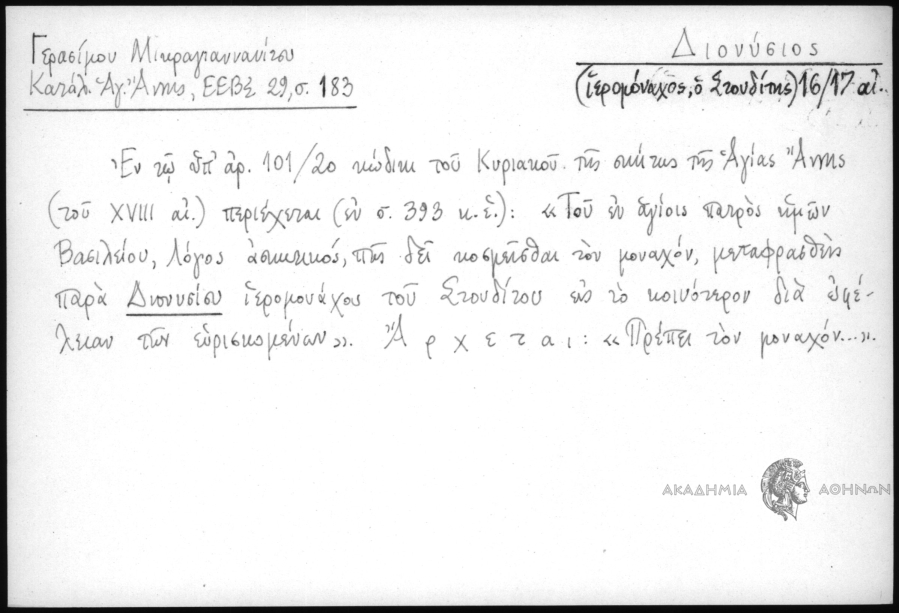 Γερασίμου Μικραγιαννανίτου
Κατάλ. Ἁγ. Ἄννης, ΕΕΒΣ 29, σ. 183
Διονύσιος
(ἱερομόναχος, ὁ Στουδίτης) 16/17 αἰ.
Ἐν τῷ ὑπ' ἀρ. 101/20 κώδικι τοῦ Κυριακοῦ τῆς σκήτης τῆς Ἁγίας Ἄννης
(τοῦ XVIII αἰ.) περιέχεται (ἐν σ. 393 κ. ἑ.): «Τοῦ ἐν ἁγίοις πατρὸς ἡμῶν
Βασιλείου, Λόγος ἀσκητικός, πῶς δεῖ κοσμεῖσθαι τὸν μοναχόν, μεταφρασθεὶς
παρὰ Διονυσίου ἱερομονάχου τοῦ Στουδίτου εἰς τὸ κοινότερον διὰ ὠφέ-
λειαν τῶν εὑρισκομένων». Ἄρχεται: «Πρέπει τὸν μοναχόν...».
ΑΚΑΔΗΜΙΑ ΑΘΗΝΩΝ